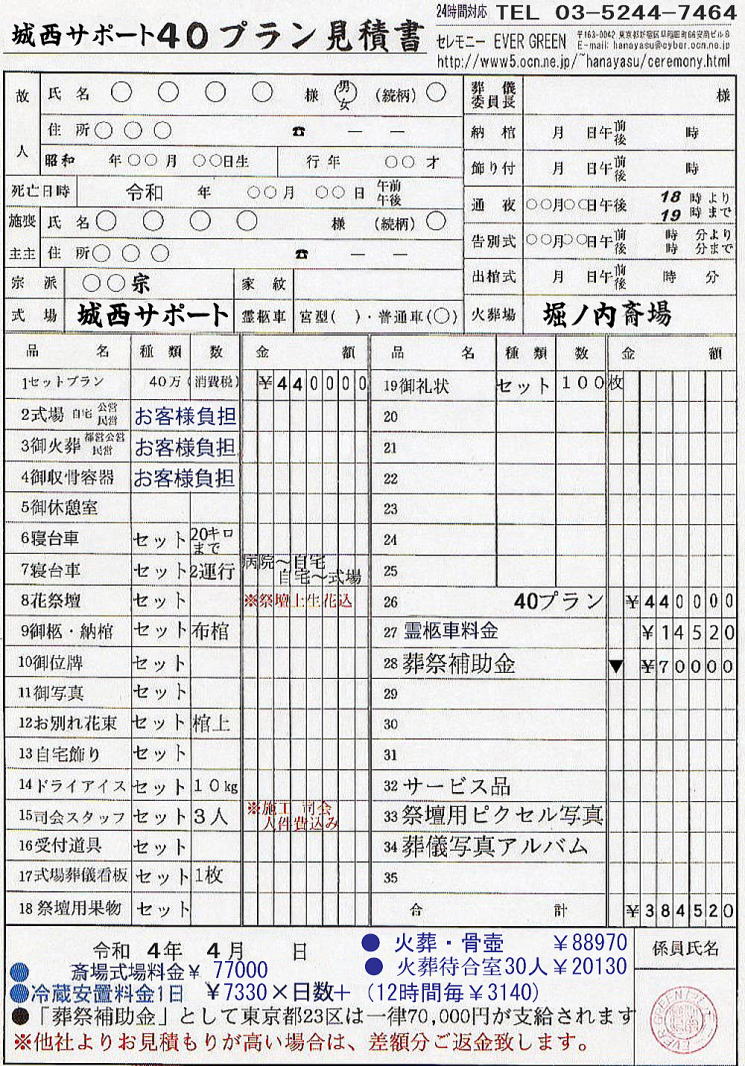 24時間対応 TEL 03-5244-7464
城西サポート40プラン見積書
セレモニー EVER GREEN
E-mail: hanayasu@cyber.ocn.ne.jp
http://www5.ocn.ne.jp/~hanayasu/ceremony.html
故人 氏名 ○ ○ ○ ○ 様 男女 (続柄) ○
住所 ○ ○ ○ ☎ — —
昭和 年○○月 ○○日生 行年 ○○才
死亡日時 令和 年 ○○月 ○○日 午前午後
施主 喪主 氏名 ○ ○ ○ ○ 様 (続柄) ○
住所 ○ ○ ○ ☎ — —
宗派 ○○宗 家紋
式場 城西サポート 霊柩車 宮型( )・普通車(○)
葬儀委員長 様
納棺 月 日午前後 時
飾り付 月 日午前後 時
通夜 ○○月○○日午後 18時より 19時まで
告別式 ○○月○○日午前後 時 分より 時 分まで
出棺式 月 日午前後 時 分
火葬場 堀ノ内斎場
品名 種類 数 金額
1セットプラン 40万(消費税) ¥440000
2式場 自宅 公営 民営 お客様負担
3御火葬 都営公営 民営 お客様負担
4御収骨容器 お客様負担
5御休憩室
6寝台車 セット 20キロまで
7寝台車 セット 2運行 病院～自宅 自宅～式場
8花祭壇 セット ※祭壇上生花込
9御柩・納棺 セット 布棺
10御位牌 セット
11御写真 セット
12お別れ花束 セット 棺上
13自宅飾り セット
14ドライアイス セット 10kg
15司会スタッフ セット 3人 ※施工 司会 人件費込み
16受付道具 セット
17式場葬儀看板 セット 1枚
18祭壇用果物 セット
品名 種類 数 金額
19御礼状 セット 100枚
20
21
22
23
24
25
26 40プラン ¥440000
27 霊柩車料金 ¥14520
28 葬祭補助金 ▼ ¥70000
29
30
31
32 サービス品
33 祭壇用ピクセル写真
34 葬儀写真アルバム
35
合計 ¥384520
令和 4年 4月 日
● 火葬・骨壺 ¥88970
● 斎場式場料金¥ 77000
● 火葬待合室30人¥20130
●冷蔵安置料金1日 ¥7330×日数+(12時間毎¥3140)
●「葬祭補助金」として東京都23区は一律70,000円が支給されます
※他社よりお見積もりが高い場合は、差額分ご返金致します。
係員氏名